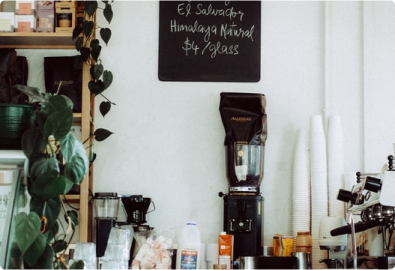 El Salvador
Himalaya Natural
$4/glass